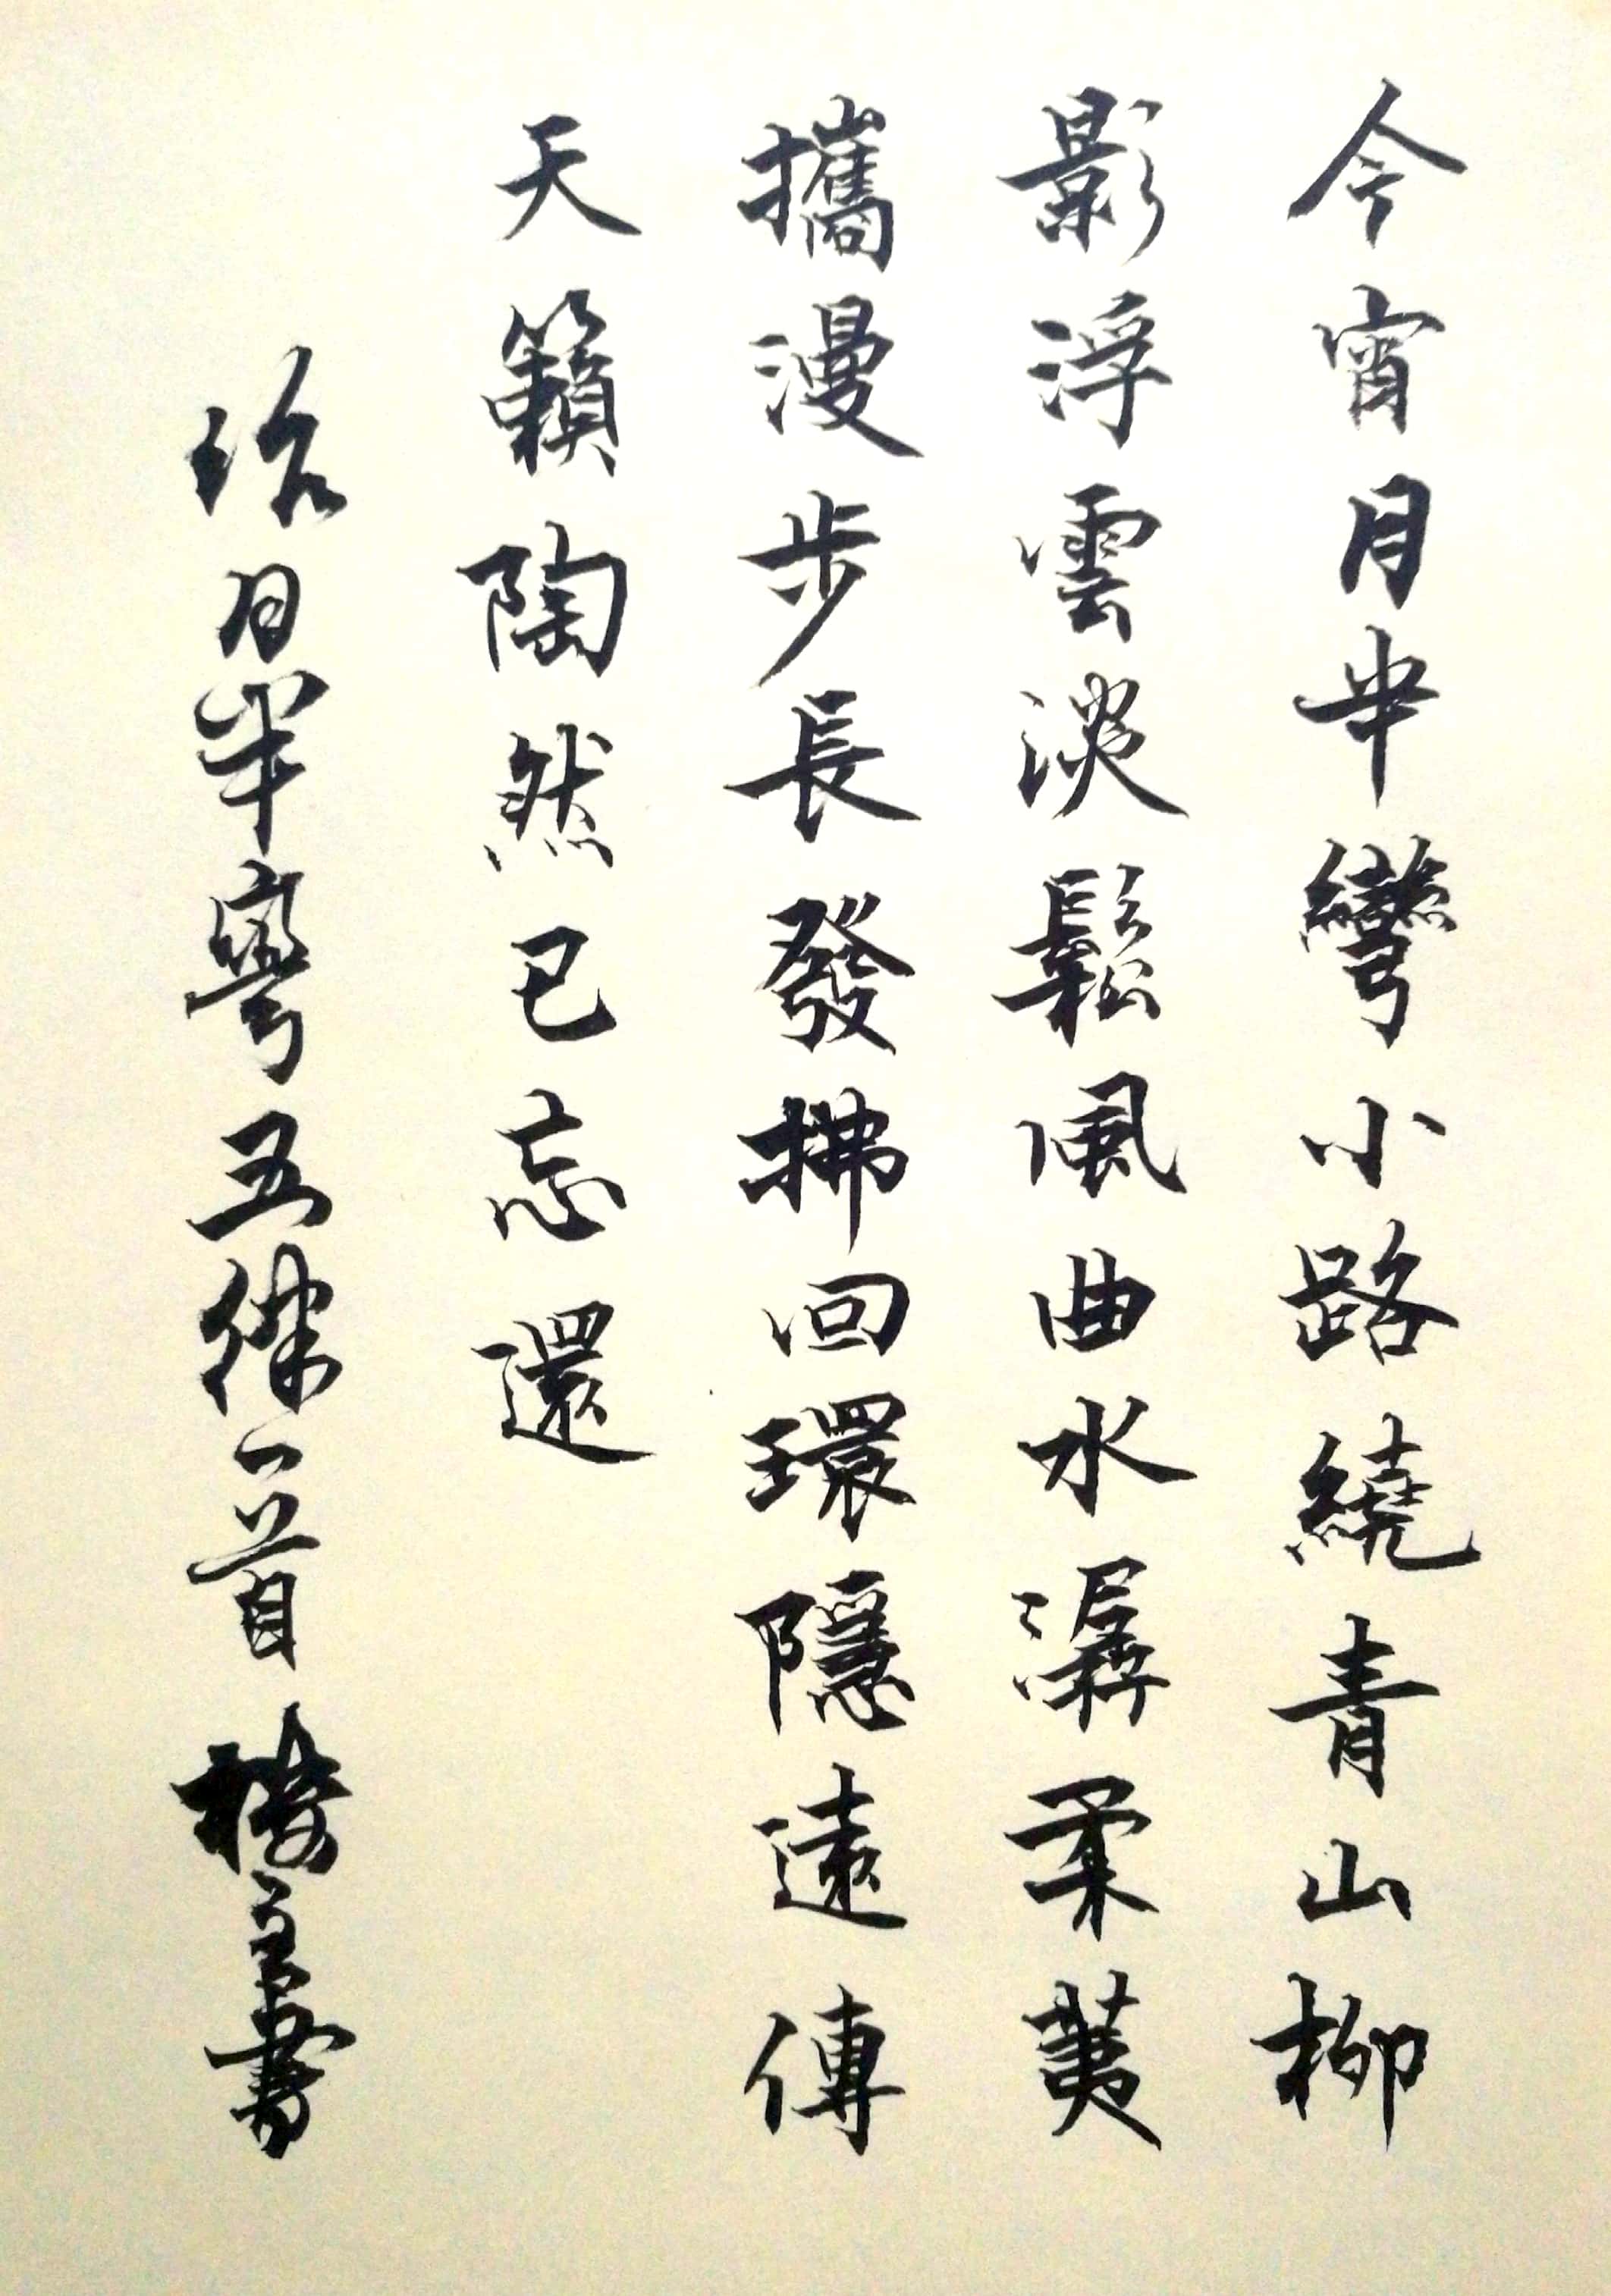 今宵月半彎小路繞青山柳
影浮雲淡鬆風曲水潺柔荑
攜漫步長發拂回環隱遠傳
天籟陶然已忘還
詠月半彎五律一首 樓主書